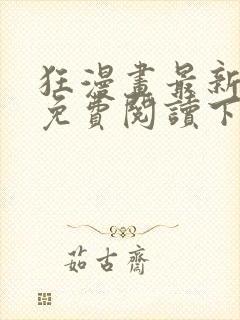 狂漫畫最新
免費閱讀下
茹古齋